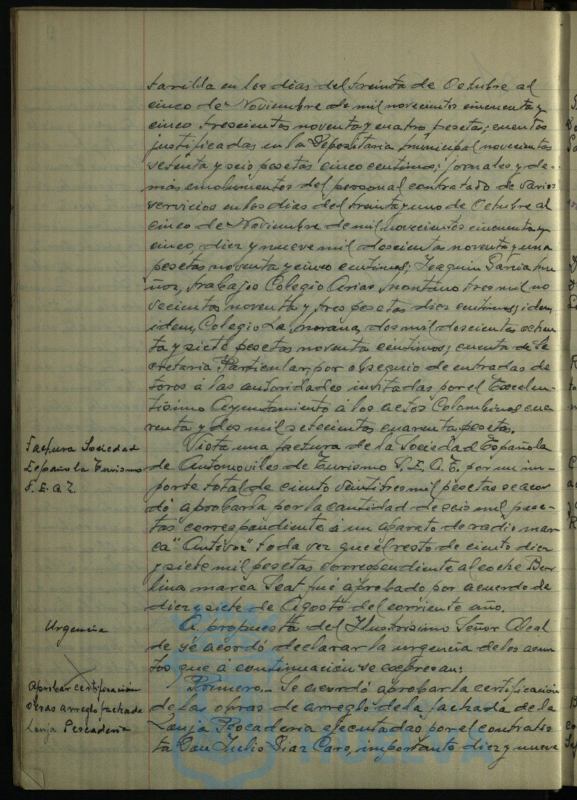 tarilla en los dias del treinta de Octubre al
cinco de Noviembre de mil novecientos cincuenta y
cinco trescientas noventa y cuatro pesetas; cuentas
justificadas en la Depositaria Municipal novecientas
setenta y seis pesetas cinco centimos; jornales y de-
más emolumentos del personal contratado de varios
servicios en los dias del treinta y uno de Octubre al
cinco de Noviembre de mil novecientos cincuenta y
cinco, diez y nueve mil doscientas noventa y una
pesetas noventa y cinco centimos; Joaquin Garcia Mu
ñoz, trabajos Colegio Arias Montano tres mil no
vecientas noventa y tres pesetas diez centimos; idem
idem, Colegio La Morana, dos mil doscientas ochen
ta y siete pesetas noventa centimos; cuenta de Se
cretaria Particular, por obsequio de entradas de
toros á las autoridades invitadas por el Excelen-
tisimo Ayuntamiento á los actos Colombinos cua
renta y dos mil setecientas cuarenta pesetas.
Factura Sociedad
Española Turismo
S.E.A.T.
Vista una factura de la Sociedad Española
de Automoviles de Turismo S.E.A.T. por un im-
porte total de ciento veintitres mil pesetas se acor
dó aprobarla por la cantidad de seis mil pese-
tas correspondiente á un aparato de radio mar
ca "Autovox" toda vez que el resto de ciento diez
y siete mil pesetas correspondiente al coche Ber
lina marca Seat fué aprobado por acuerdo de
diez y siete de Agosto del corriente año.
Urgencia
A propuesta del Ilustrisimo Señor Alcal
de se acordó declarar la urgencia de los asun
tos que á continuación se expresan:
Aprobar certificación
obras arreglo fachada
Lonja Pescaderia
Primero.- Se acordó aprobar la certificación
de las obras de arreglo de la fachada de la
Lonja Pescaderia ejecutadas por el contratis
ta Don Julio Diaz Caro, importante diez y nueve
HUELVA